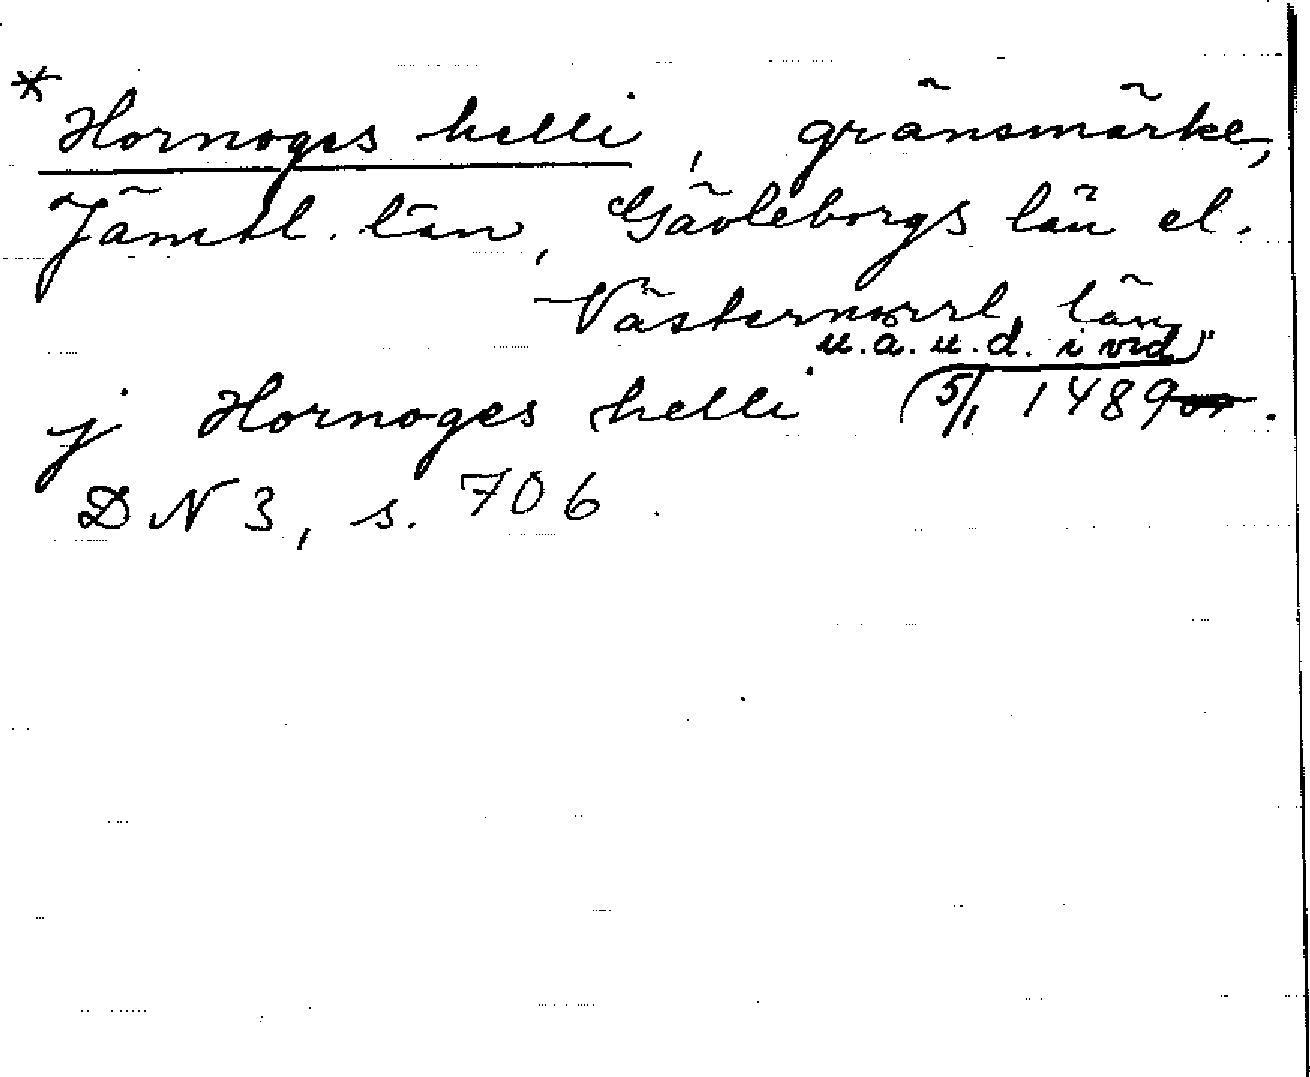 * Hornoges helli, gränsmärke,
Jämtl. län, Gävleborgs län el.
Västernorrl. län
u.a.u.d. i vid
j Hornoges helli (5/1 1489).
DN 3, s. 706.